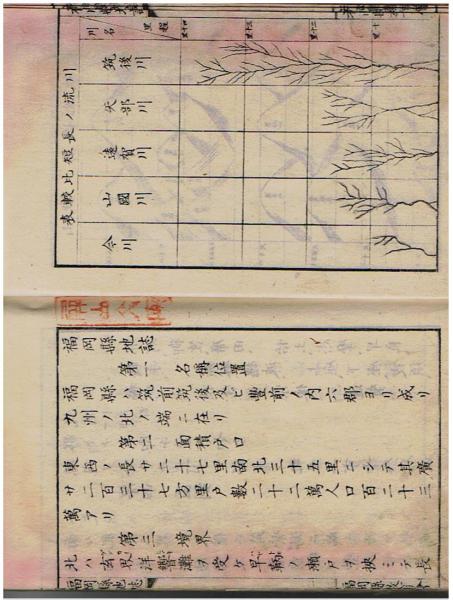 川流ノ長短比較表
里程
川名
十里
二十里
三十里
四十里
筑後川
矢部川
遠賀川
山國川
今川
福岡縣地誌
第一 名稱位置
福岡縣ハ筑前筑後及ヒ豊前ノ内六郡ヨリ成リ
九州ノ北ノ端ニ在リ
第二 面積戸口
東西ノ長サ二十七里南北三十五里ニシテ其廣
サ二百三十七方里戸數二十二萬人口百二十三
萬アリ
第三 境界
北ハ玄界洋響灘ヲ受ケ早鞆ノ瀬戸ヲ挾ミテ長